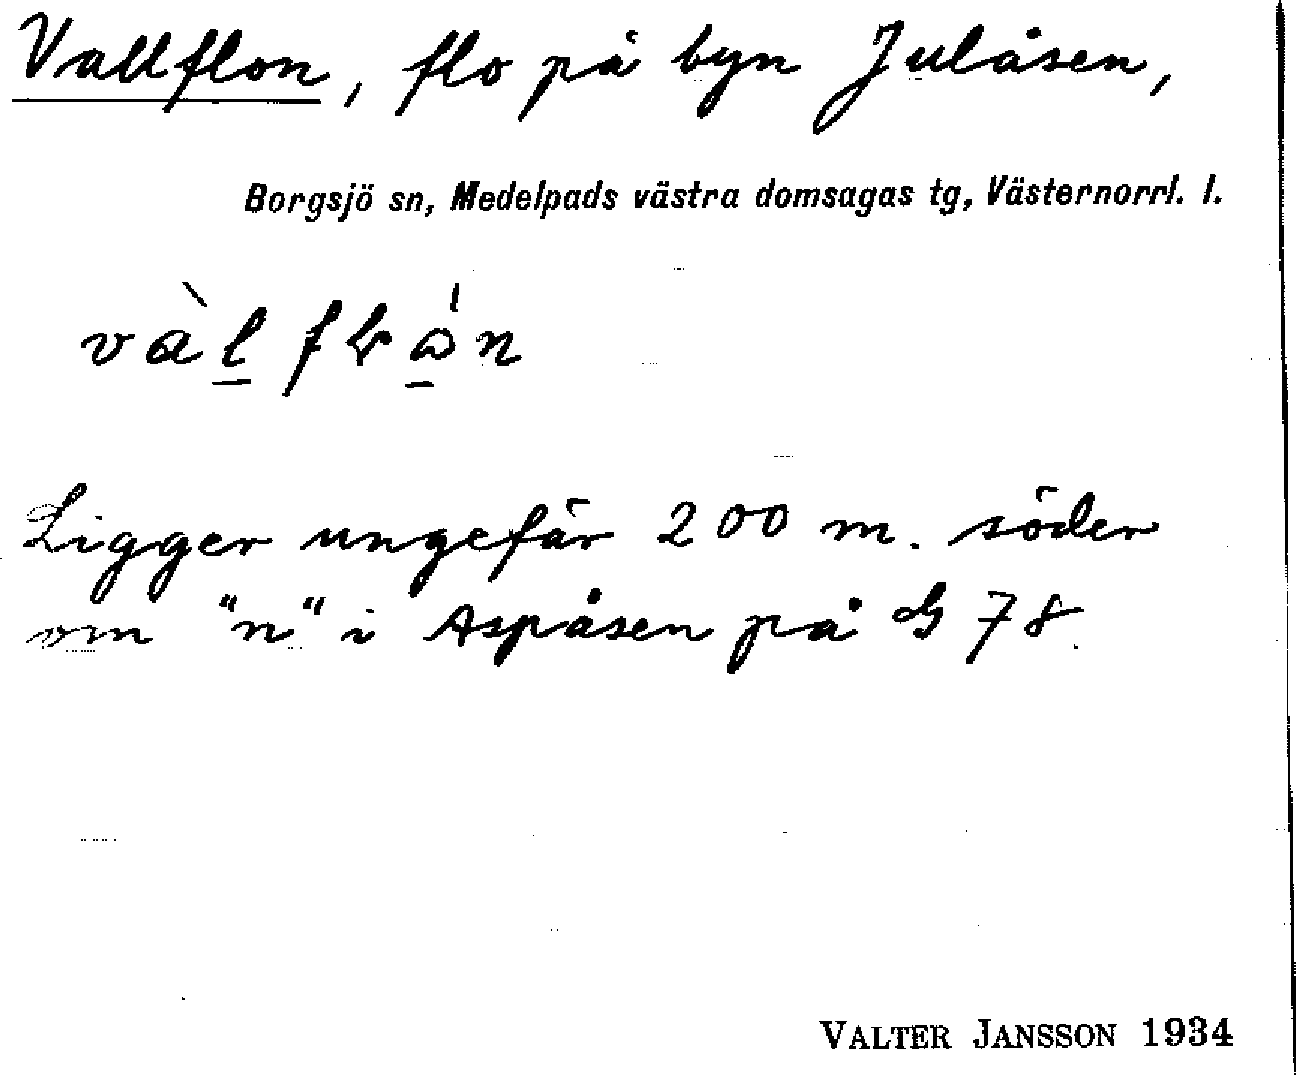 Vallflon, flo på byn Julåsen,
Borgsjö sn, Medelpads västra domsagas tg, Västernorrl. l.
Ligger ungefär 200 m. söder
om "n" i Aspåsen på G 78.
VALTER JANSSON 1934